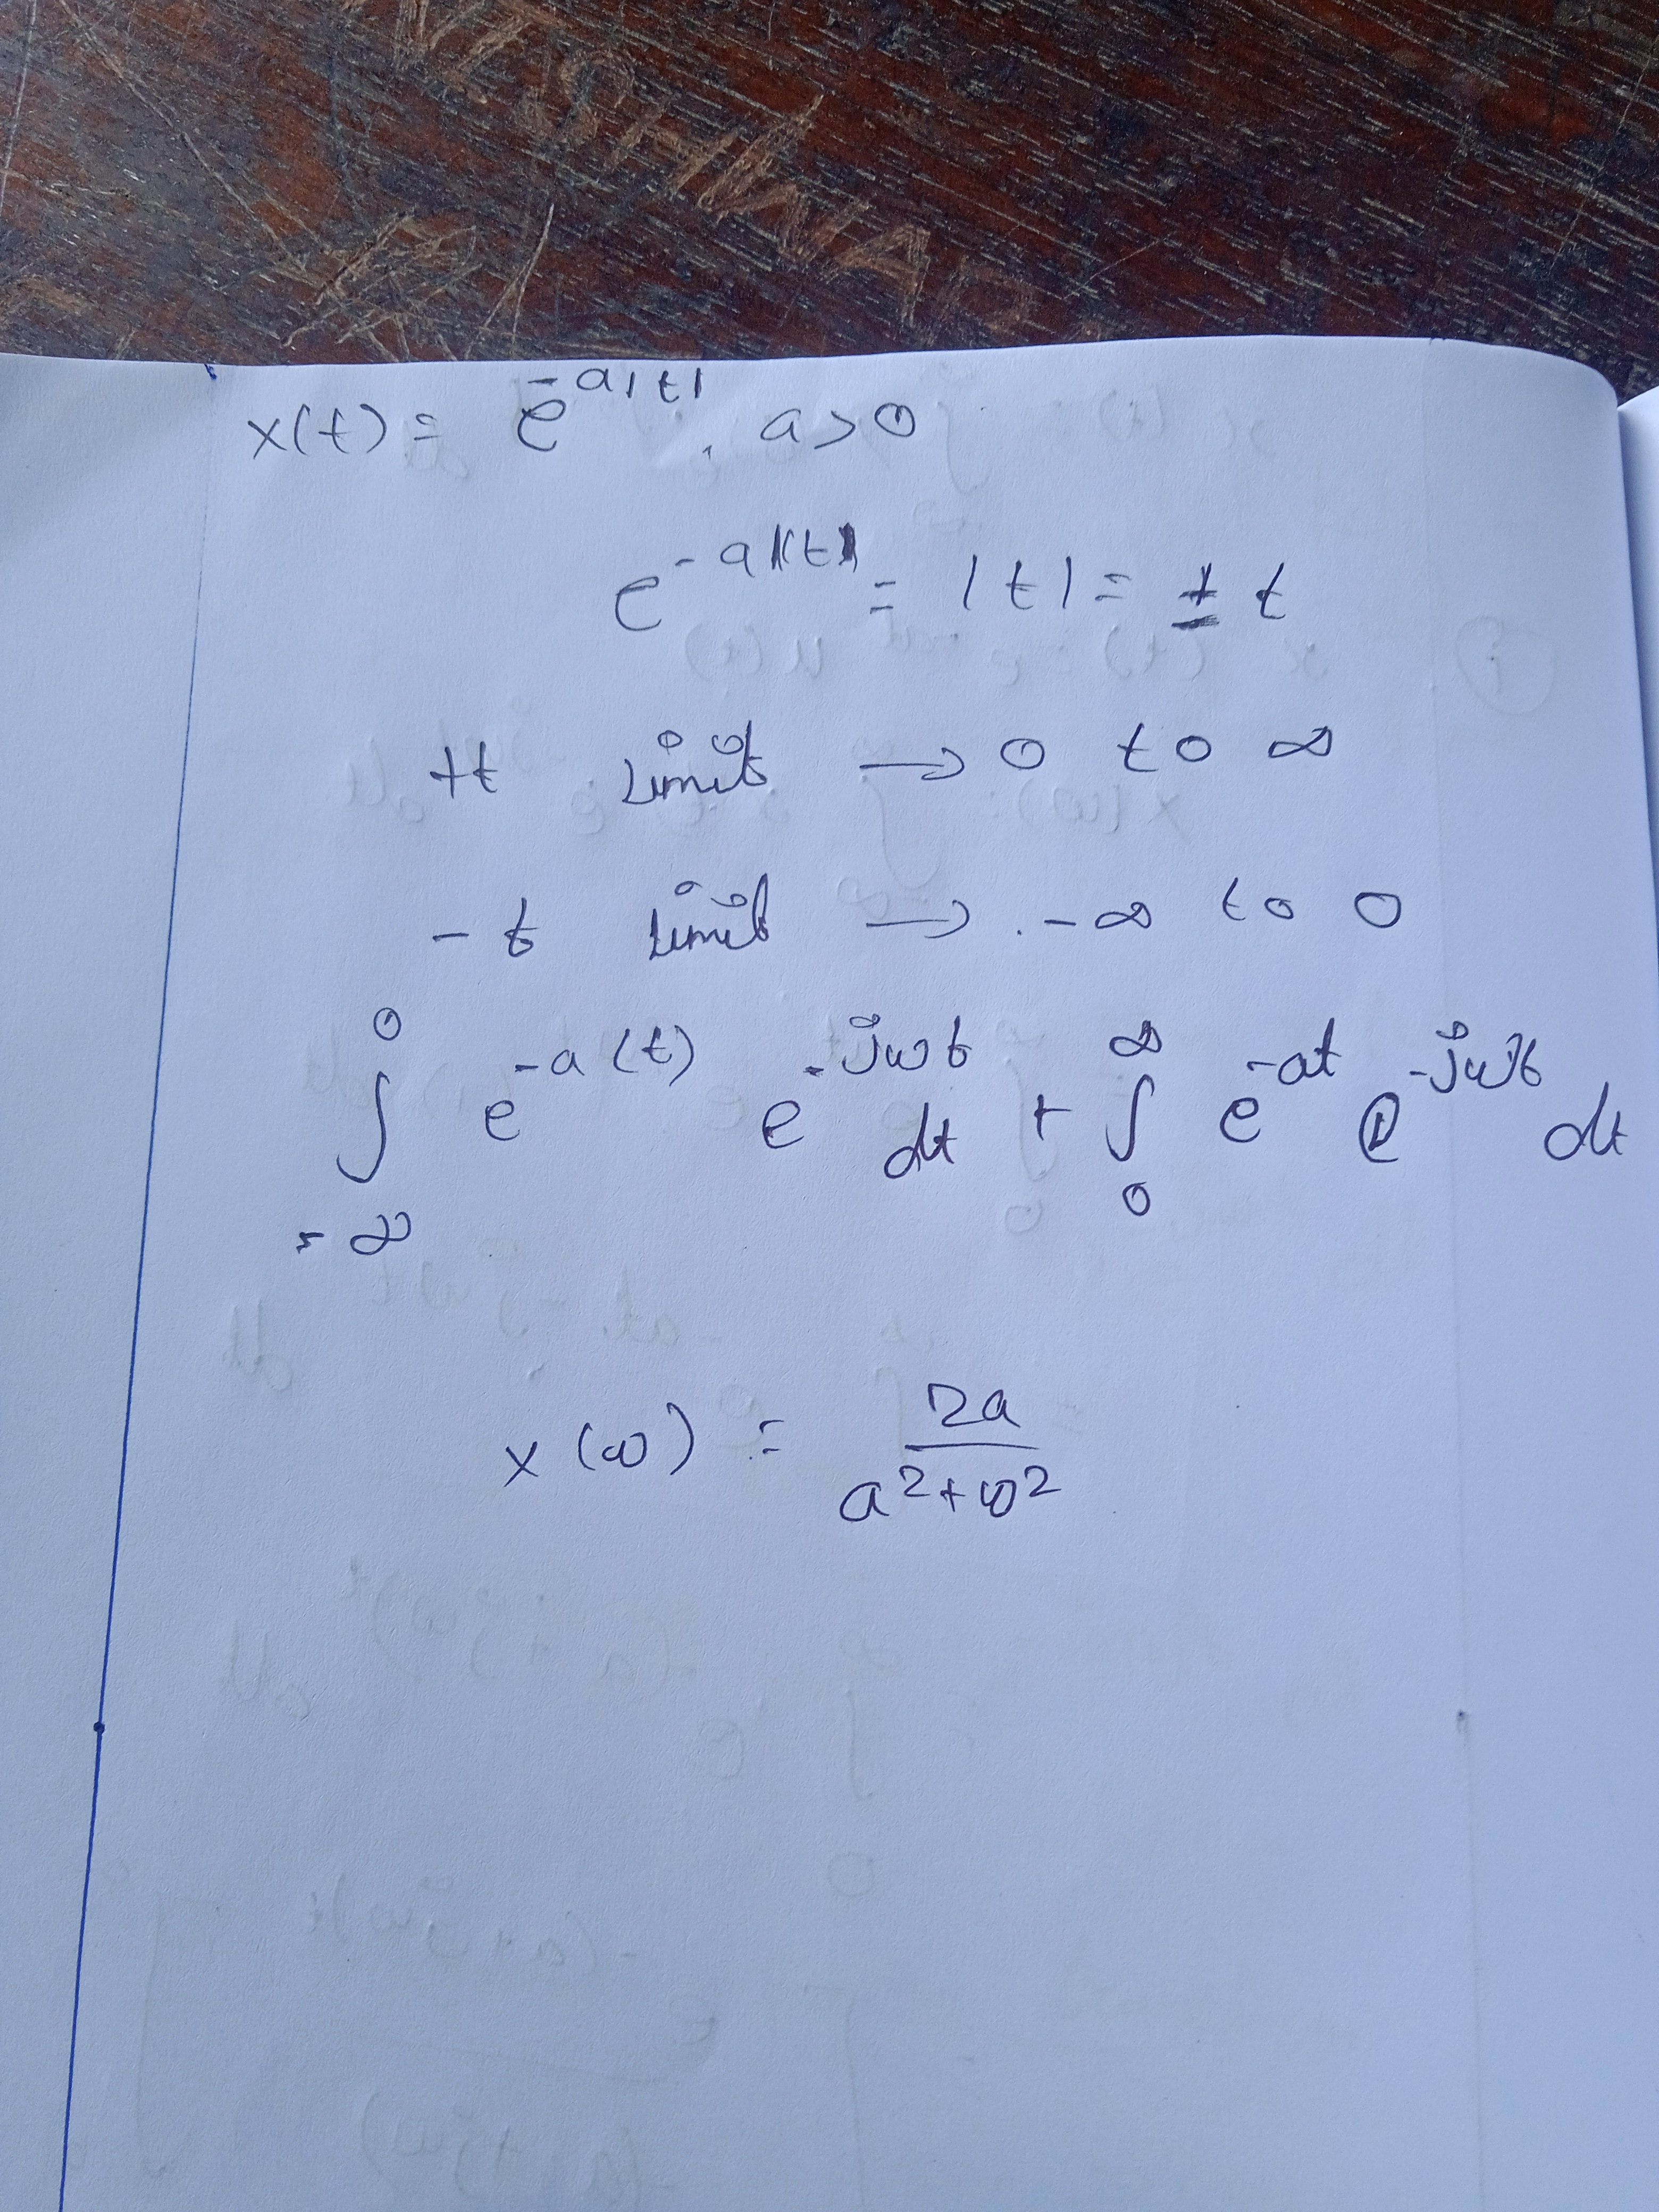 x(t) = e^{-a|t|}, a>0
e^{-a|t|} = |t| = ± t
+t limit → 0 to ∞
-t limit → -∞ to 0
∫_{-∞}^{0} e^{-a(t)} e^{-jωt} dt + ∫_{0}^{∞} e^{-at} e^{-jωt} dt
x(ω) = \frac{2a}{a^2+ω^2}